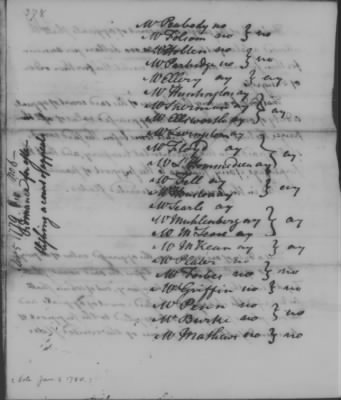 378
Mr Peabody no } no
Mr Folsom no
Mr Holten no } no
Mr Partridge no
Mr Ellery ay } ay
Mr Huntington ay } ay
Mr Sherman ay
Mr Ellsworth ay
Mr Livingston ay } ay
Mr Floyd ay
Mr L'Hommedieu ay
Mr Fell ay } ay
Mr Houston ay
Mr Searle ay } ay
Mr Muhlenberg ay
Mr McLene ay
Mr McKean ay } ay
Mr Plater no
Mr Forbes no } no
Mr Griffin no } no
Mr Penn no } no
Mr Burke no
Mr Mathews no } no